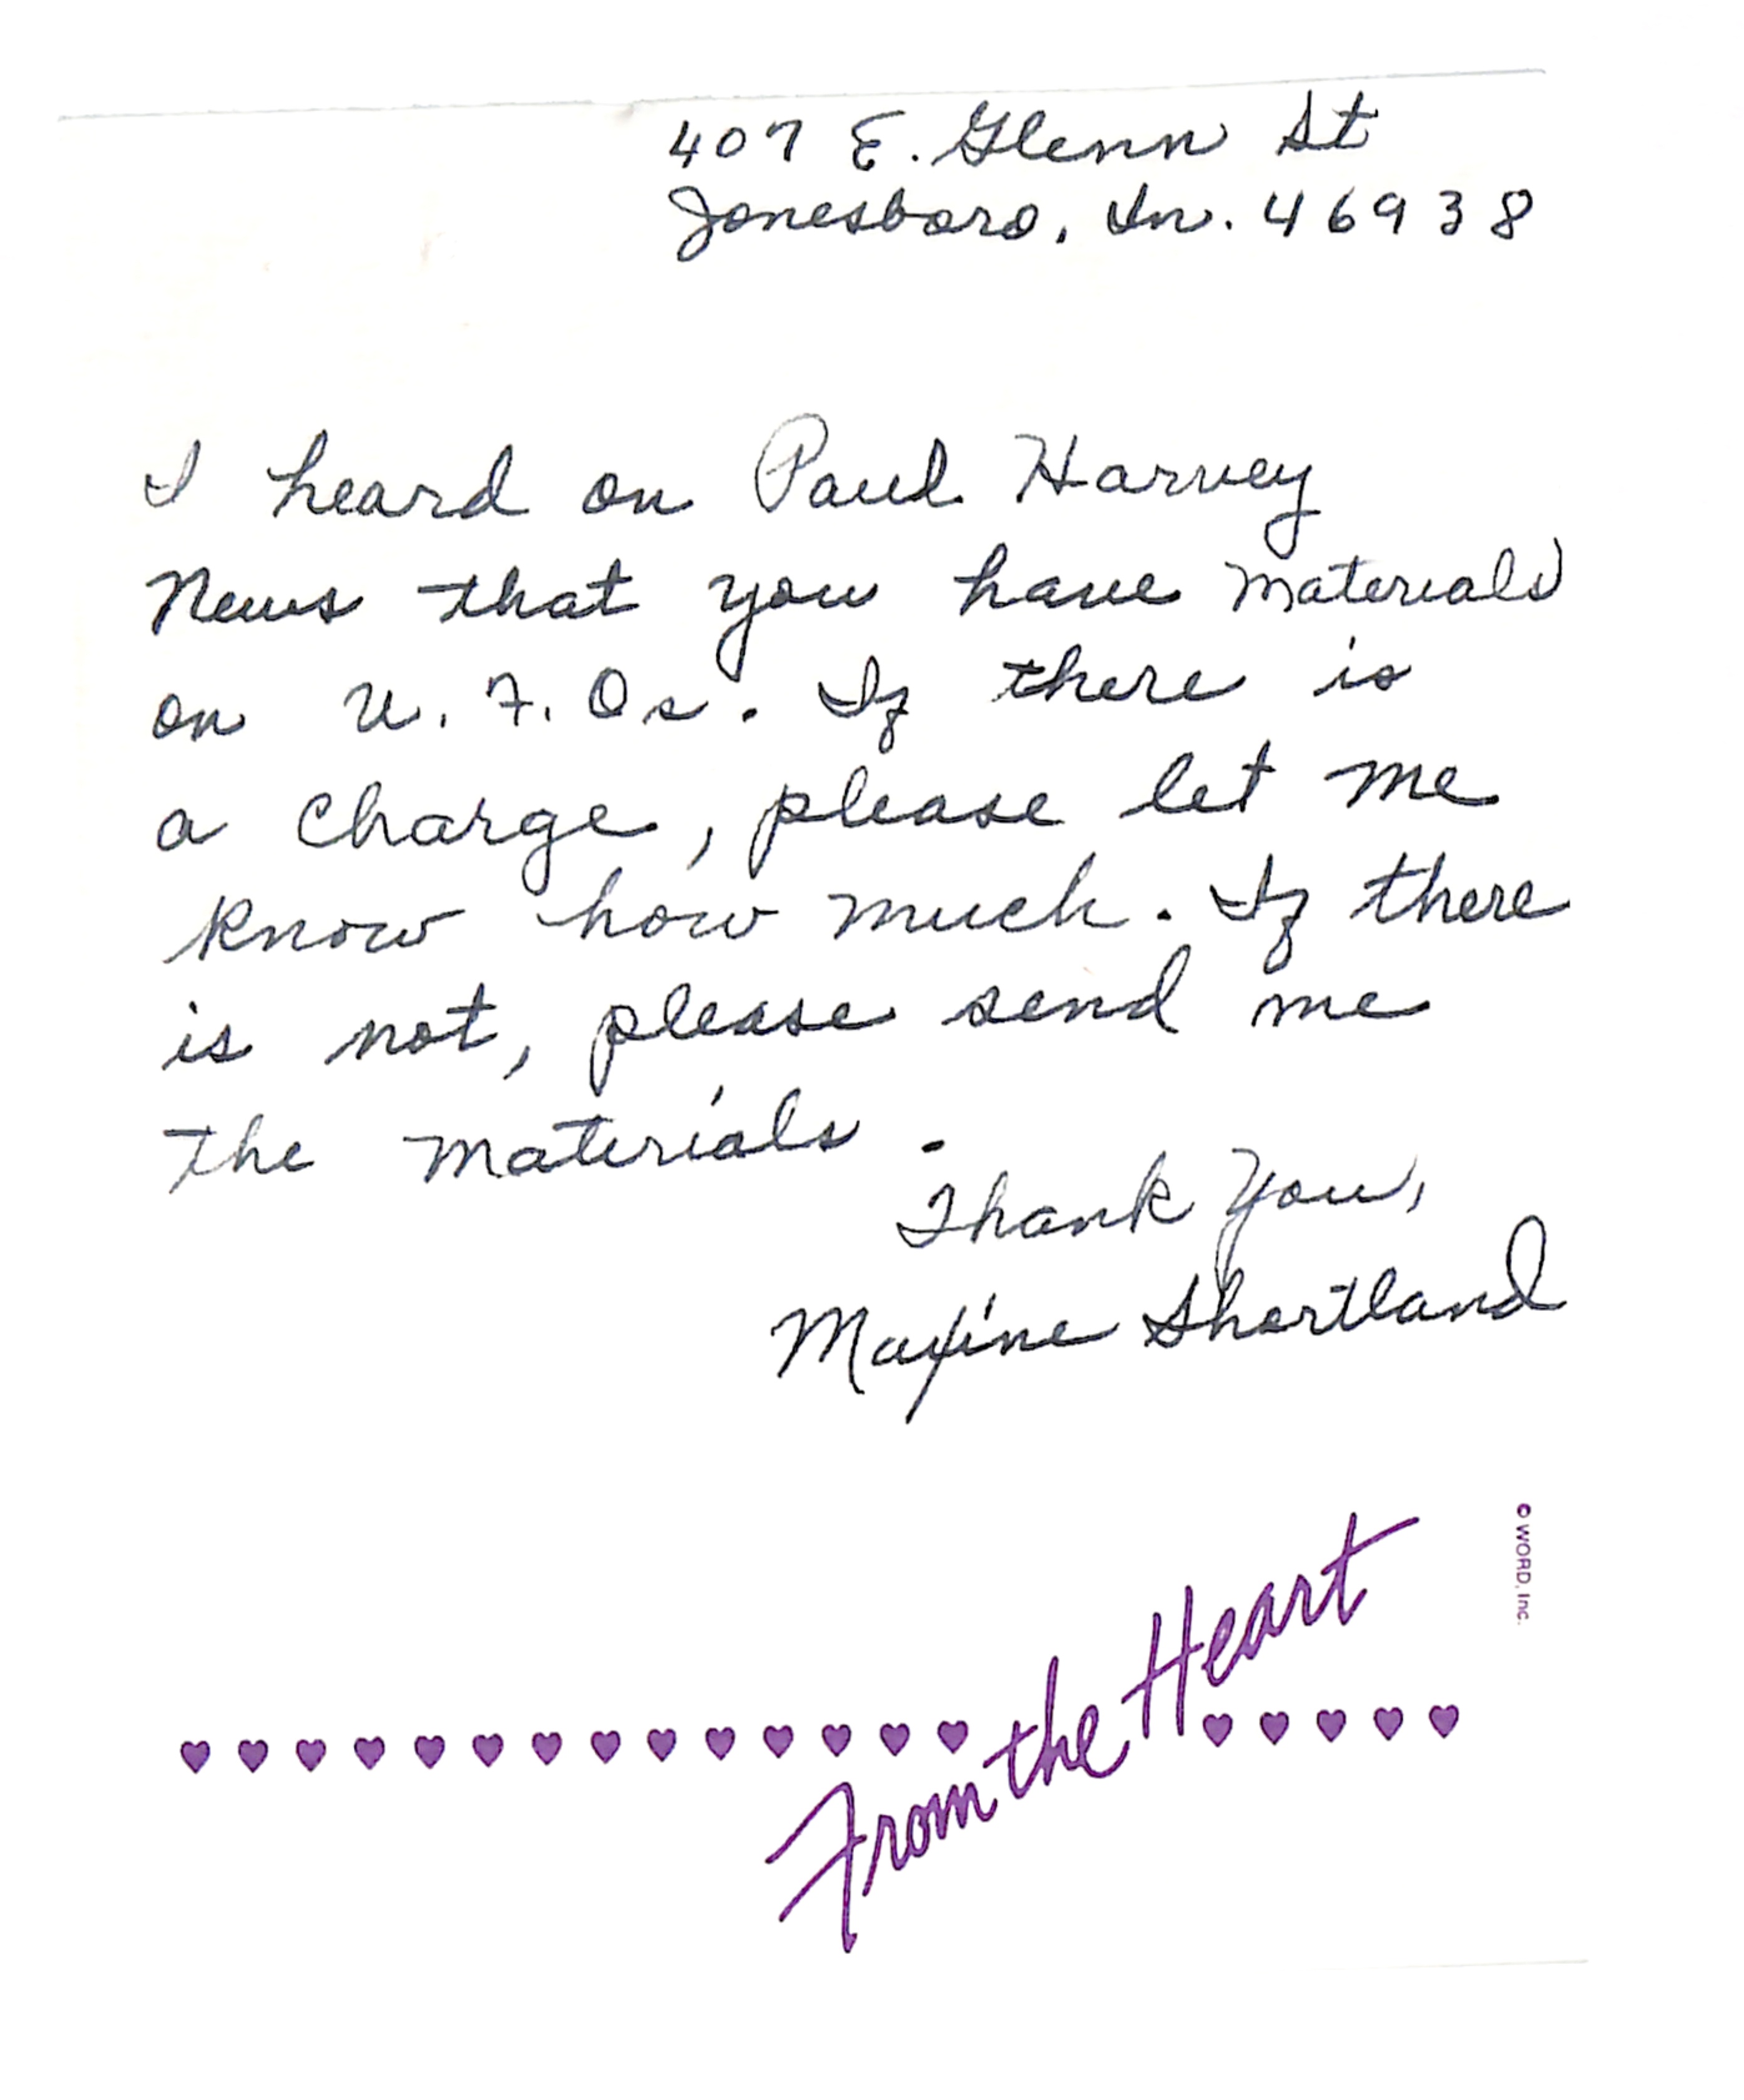 407 E. Glenn St
Jonesboro, In. 46938
I heard on Paul Harvey
News that you have materials
on U.F.Os. If there is
a charge, please let me
know how much. If there
is not, please send me
the materials.
Thank you,
Maxine Shortland
© WORD, Inc.
From the Heart